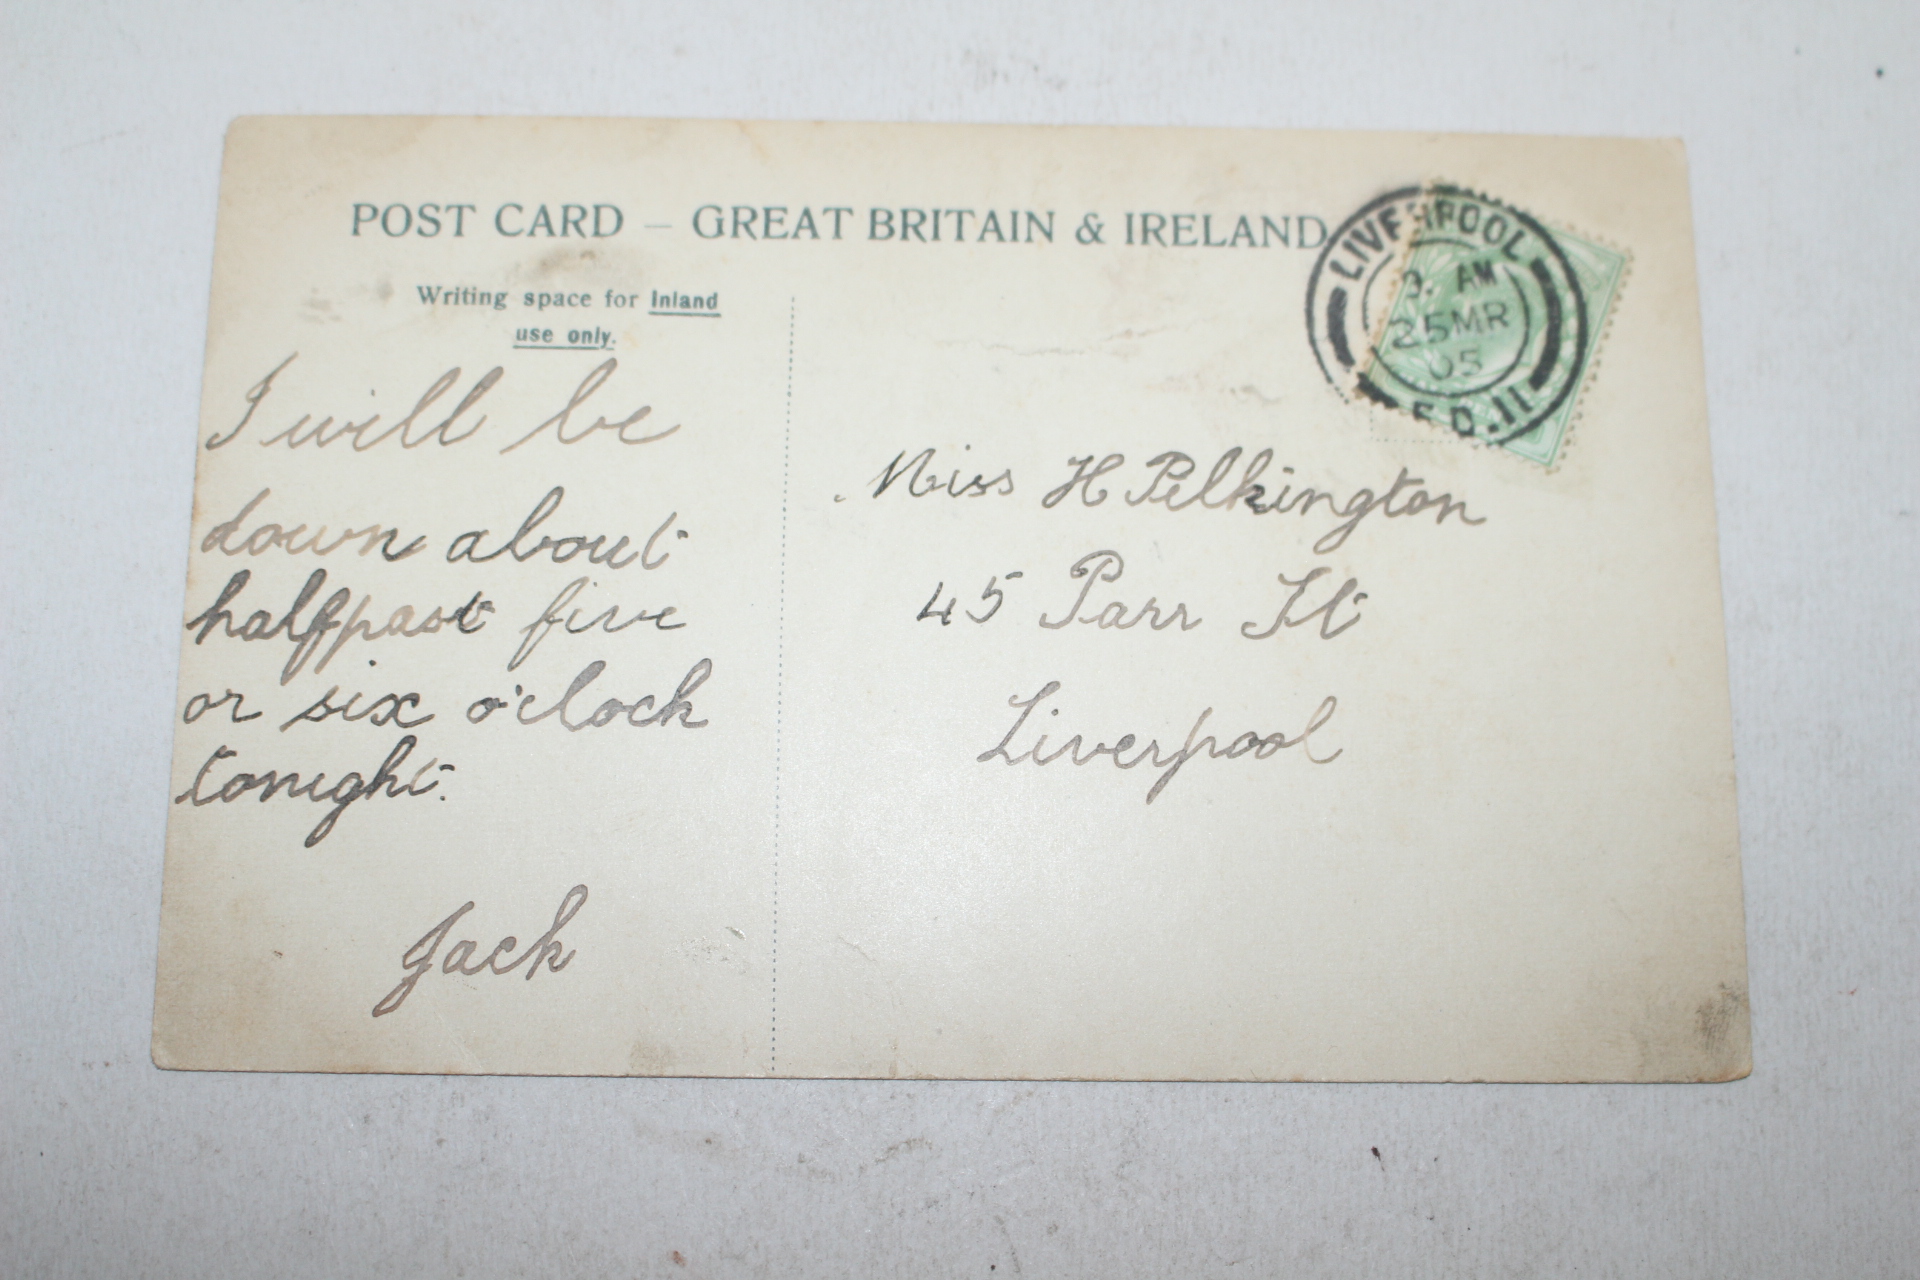 POST CARD – GREAT BRITAIN & IRELAND
Writing space for Inland
use only.
LIVERPOOL
AM
25MR
05
I will be
down about
halfpast five
or six o'clock
tonight.
Jack
Miss H Pelkington
45 Parr St
Liverpool